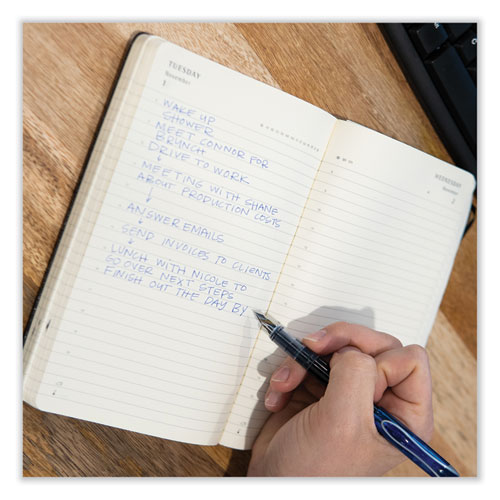 TUESDAY
November
1
· WAKE UP
SHOWER
· MEET CONNOR FOR
BRUNCH
· DRIVE TO WORK
· MEETING WITH SHANE
ABOUT PRODUCTION COSTS
· ANSWER EMAILS
· SEND INVOICES TO CLIENTS
· LUNCH WITH NICOLE TO
GO OVER NEXT STEPS
· FINISH OUT THE DAY BY
WEDNESDAY
November
2